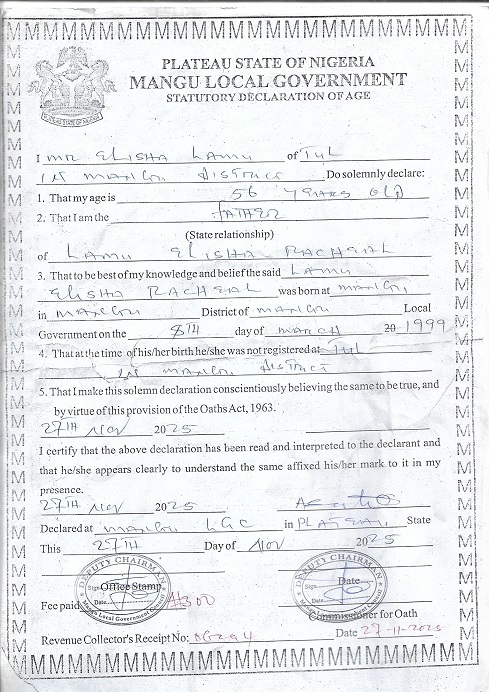 PLATEAU STATE OF NIGERIA
MANGU LOCAL GOVERNMENT
STATUTORY DECLARATION OF AGE
I MR ELISHA LAMU of TUL
1st MANGU DISTRICT Do solemnly declare:
1. That my age is 56 YEARS OLD
2. That I am the FATHER
(State relationship)
of LAMU ELISHA RACHEAL
3. That to be best of my knowledge and belief the said LAMU
ELISHA RACHEAL was born at MANGU
in MANGU District of MANGU Local
Government on the 8TH day of MARCH 20 1999
4. That at the time of his/her birth he/she was not registered at TUL
1st MANGU DISTRICT
5. That I make this solemn declaration conscientiously believing the same to be true, and
by virtue of this provision of the Oaths Act, 1963.
27TH NOV 2025
I certify that the above declaration has been read and interpreted to the declarant and
that he/she appears clearly to understand the same affixed his/her mark to it in my
presence.
27TH NOV 2025
Declared at MANGU LGC in PLATEAU State
This 27TH Day of NOV 2025
DEPUTY CHAIRMAN
Sign
Office Stamp
Date
Mangu Local Government Council
DEPUTY CHAIRMAN
Sign
Date
Date
Fee paid ₦300
Commissioner for Oath
Revenue Collector's Receipt No:
Date 27-11-2025